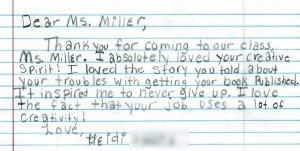 Dear Ms. Miller,
Thank you for coming to our class,
Ms. Miller. I absolutely loved your creative
Spirit! I loved the story you told about
your troubles with getting your book Published.
It inspired me to never give up. I love
the fact that your job uses a lot of
Creativity!
Love,
Heidi